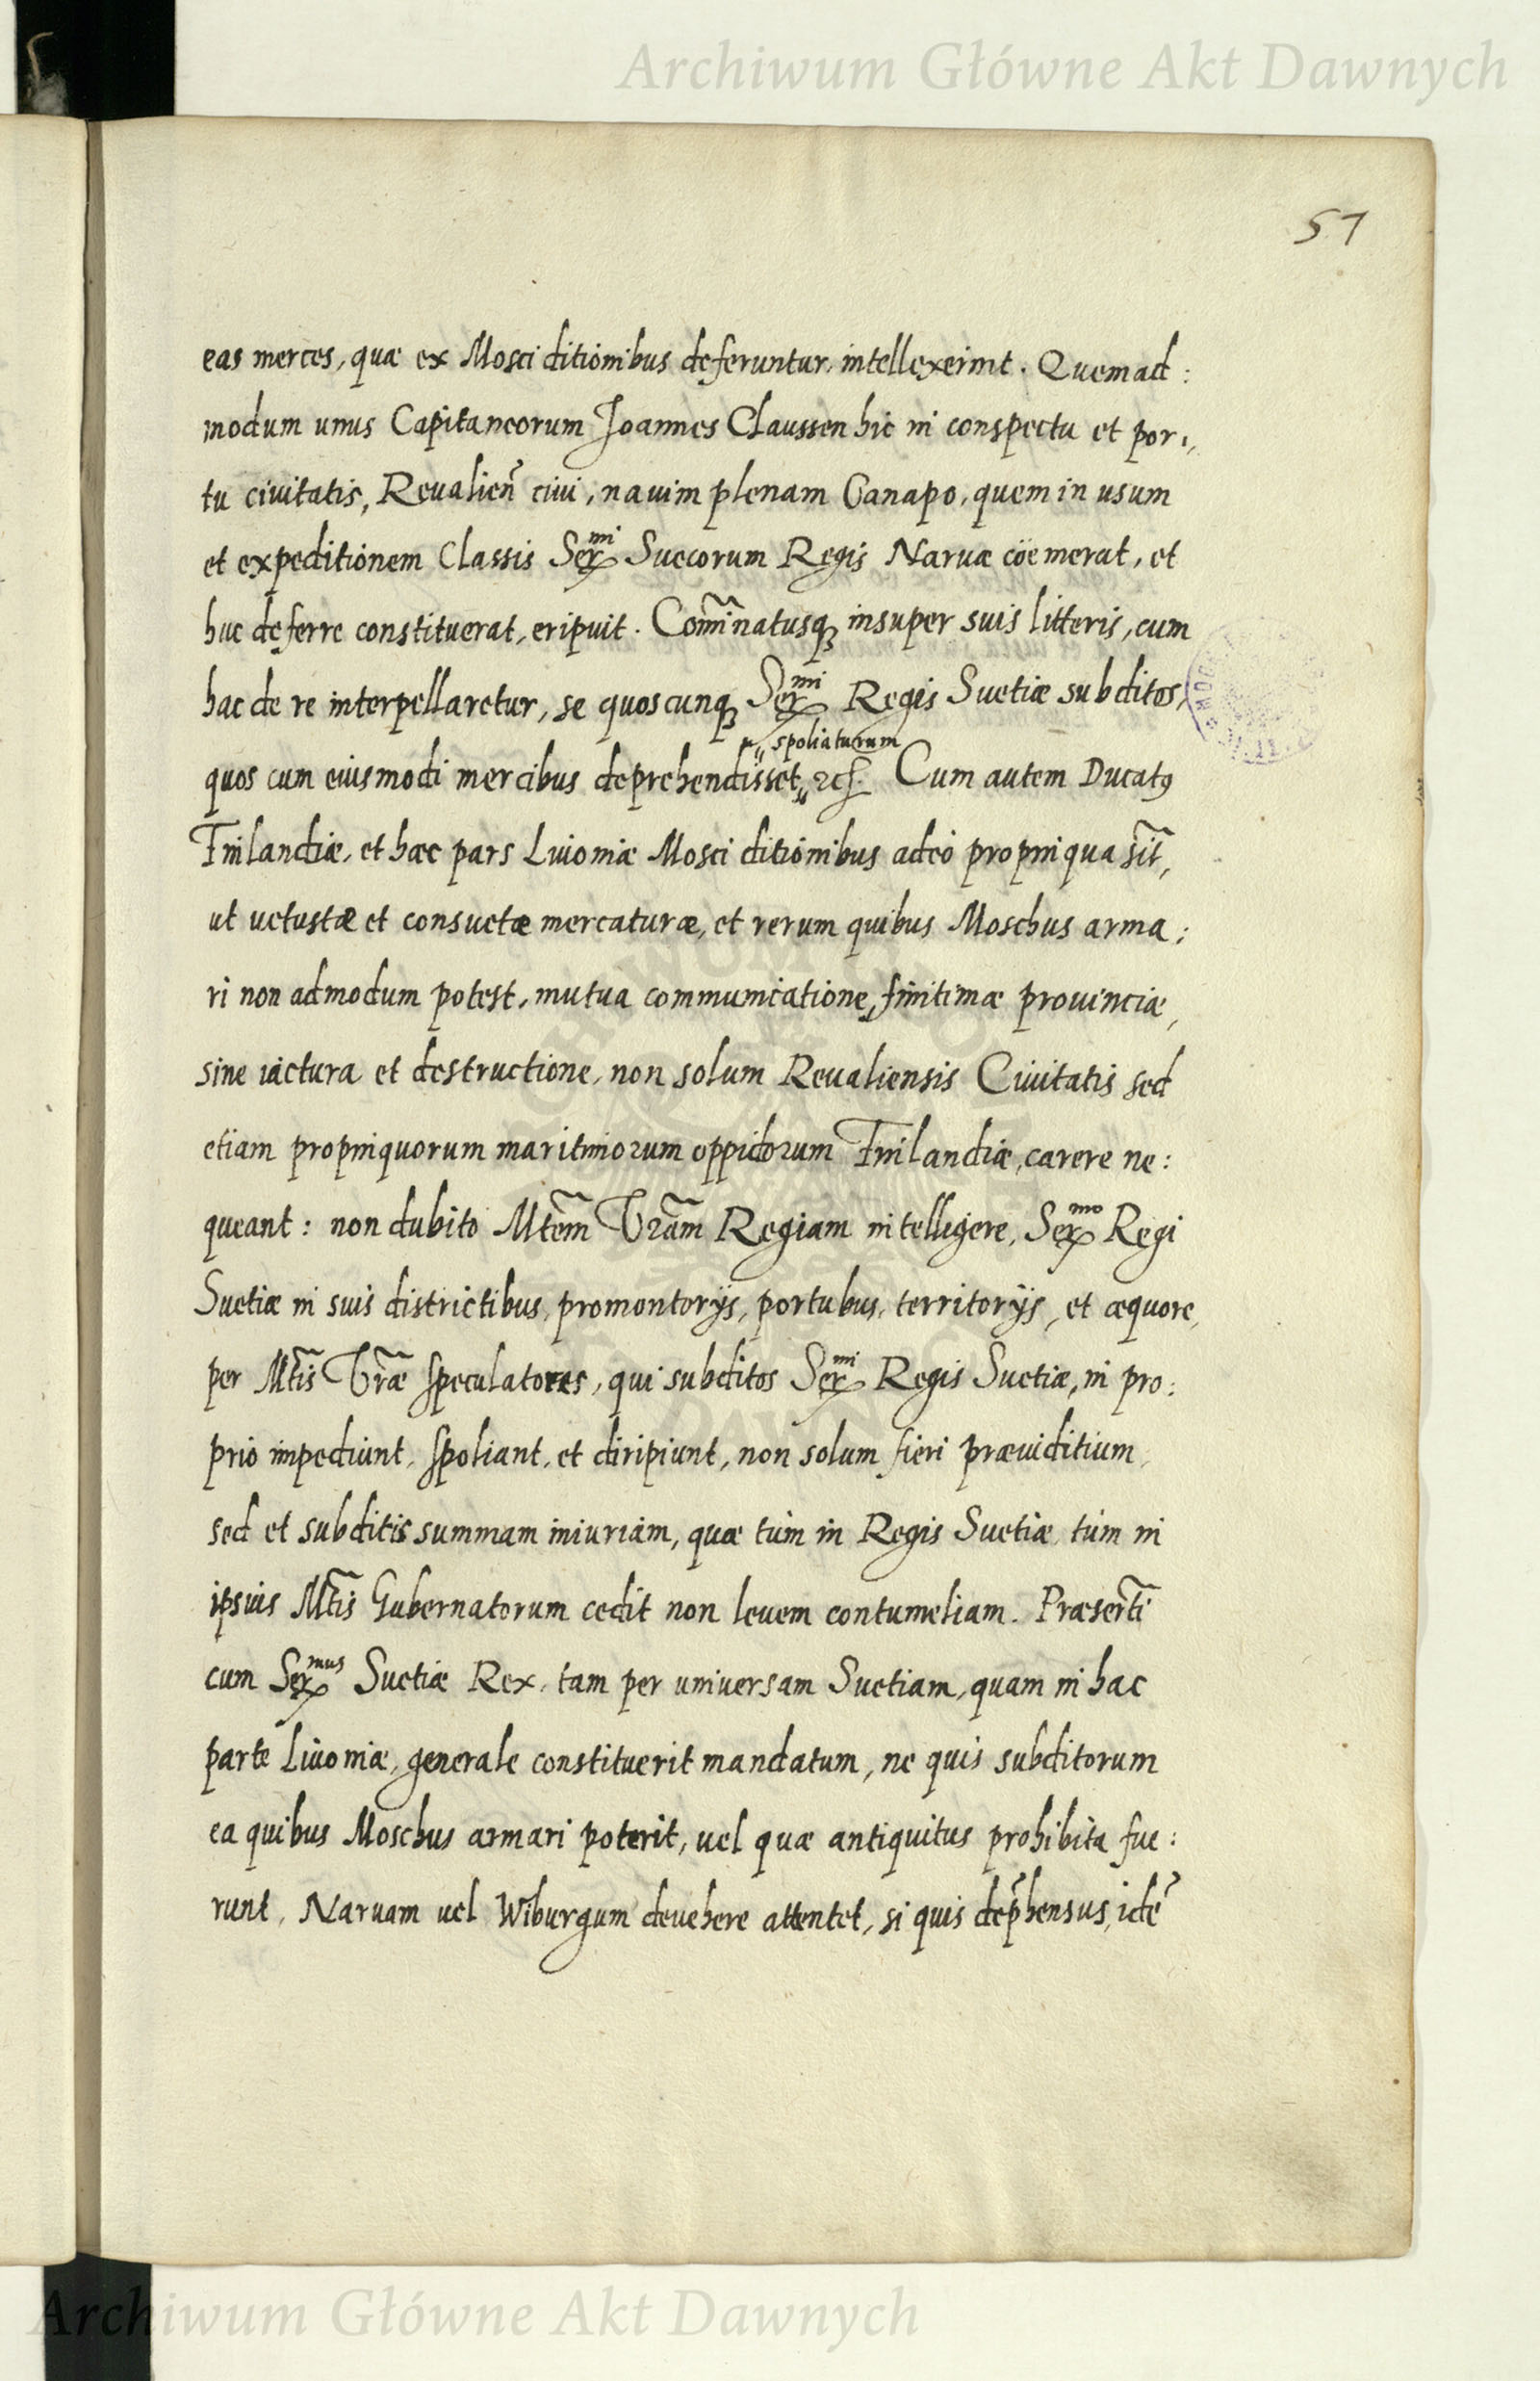 Archiwum Główne Akt Dawnych
51
eas merces, quæ ex Mosci ditionibus deferuntur, intellexerint. Quemad:
modum unus Capitaneorum Joannes Claussen hic in conspectu et por:,
tu civitatis, Revalien̄ civi, navim plenam Canapo, quem in usum
et expeditionem Classis Ser^mi Suecorum Regis Narvæ coëmerat, et
huc deferre constituerat, eripuit. Com̃inatusq₃ insuper suis litteris, cum
hac de re interpellaretur, se quoscunq₃ Ser^mi Regis Suetiæ subditos,
spoliaturum
quos cum eiusmodi mercibus deprehendisset, Cum autem Ducatꝰ
Finlandiæ, et hæc pars Livoniæ Mosci ditionibus adeò propinqua sĩt,
ut vetustæ et consuetæ mercaturæ, et rerum quibus Moschus arma:
ri non admodum potest, mutua communicatione, finitimæ provinciæ,
sine iactura et destructione, non solum Revaliensis Civitatis sed
etiam propinquorum maritimorum oppidorum Finlandiæ, carere ne:
queant: non dubito Mtẽm Vrãm Regiam intelligere, Ser^mo Regi
Suetiæ in suis districtibus, promontorijs, portubus, territorijs, et æquore,
per Mt̃is Vr̃æ speculatores, qui subditos Ser^mi Regis Suetiæ, in pro:
prio impediunt, spoliant, et diripiunt, non solum fieri præiuditium,
sed et subditis summam iniuriam, quæ tùm in Regis Suetiæ, tùm in
ipsius Mt̃is Gubernatorum cedit non levem contumeliam. Præsert̃i
cum Ser^mus Suetiæ Rex, tam per universam Suetiam, quam in hac
parte Livoniæ, generale constituerit mandatum, ne quis subditorum
ea quibus Moschus armari poterit, vel quæ antiquitus prohibita fue:
runt, Narvam vel Wiburgum devehere attentet, si quis dep̄hensus, idẽ
Archiwum Główne Akt Dawnych